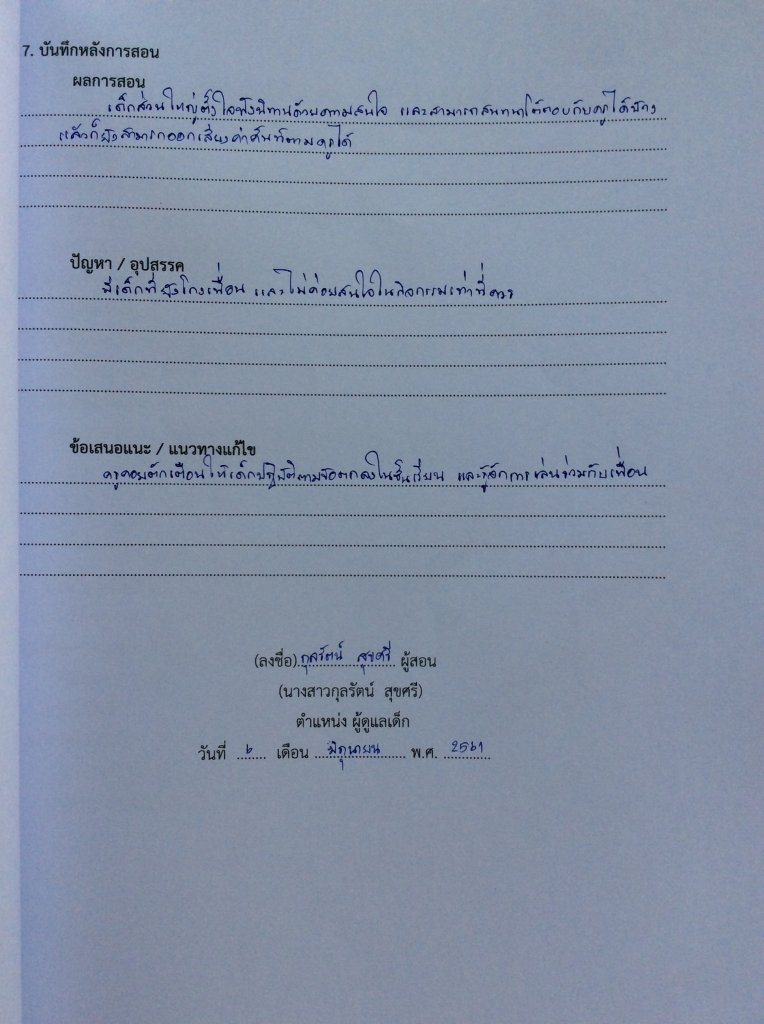 7. บันทึกหลังการสอน
ผลการสอน
เด็กส่วนใหญ่ตั้งใจฟังนิทานด้วยความสนใจ และสามารถสนทนาโต้ตอบกับครูได้บ้าง
แล้วก็ยังสามารถออกเสียงคำศัพท์ตามครูได้
ปัญหา / อุปสรรค
มีเด็กที่ยังแกล้งเพื่อน และไม่ค่อยสนใจในกิจกรรมเท่าที่ควร
ข้อเสนอแนะ / แนวทางแก้ไข
ครูคอยตักเตือนให้เด็กปฏิบัติตามข้อตกลงในชั้นเรียน และรู้จักการเล่นร่วมกับเพื่อน
(ลงชื่อ) กุลรัตน์ สุขศรี ผู้สอน
(นางสาวกุลรัตน์ สุขศรี)
ตำแหน่ง ผู้ดูแลเด็ก
วันที่ ๖ เดือน มิถุนายน พ.ศ. 2561